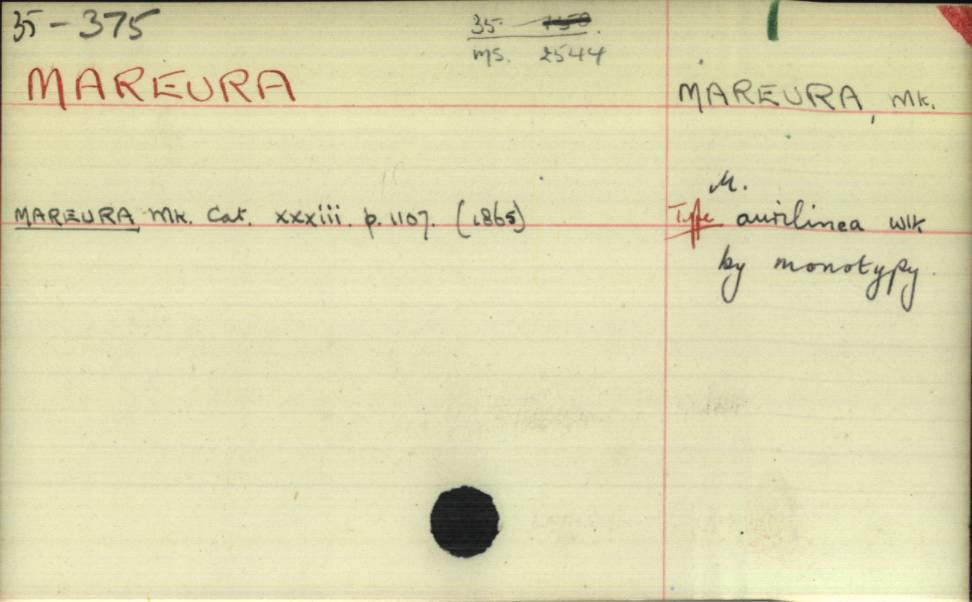 35-375
35-
MS. 2544
MAREURA
MAREURA, Wlk.
MAREURA Wlk. Cat. xxxiii. p. 1107. (1865)
M.
Type aurilinea Wlk
by monotypy.